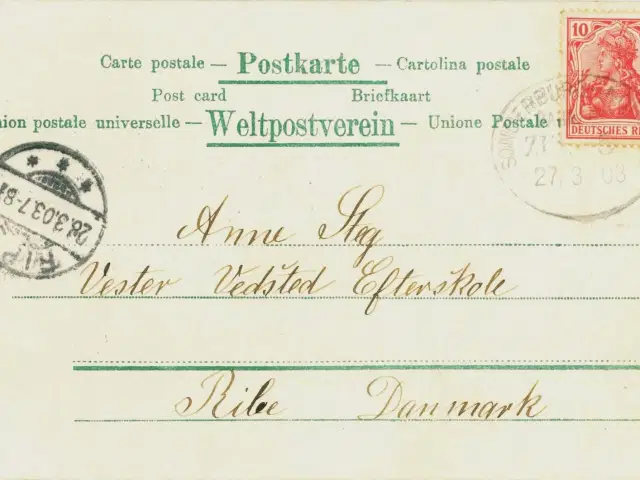 Carte postale — Postkarte — Cartolina postale
Post card Briefkaart
nion postale universelle — Weltpostverein — Unione Postale
10
DEUTSCHES RE
27. 3 03
28.3.03.7-8
Anne Steg
Vester Vedsted Efterskole
Ribe Danmark